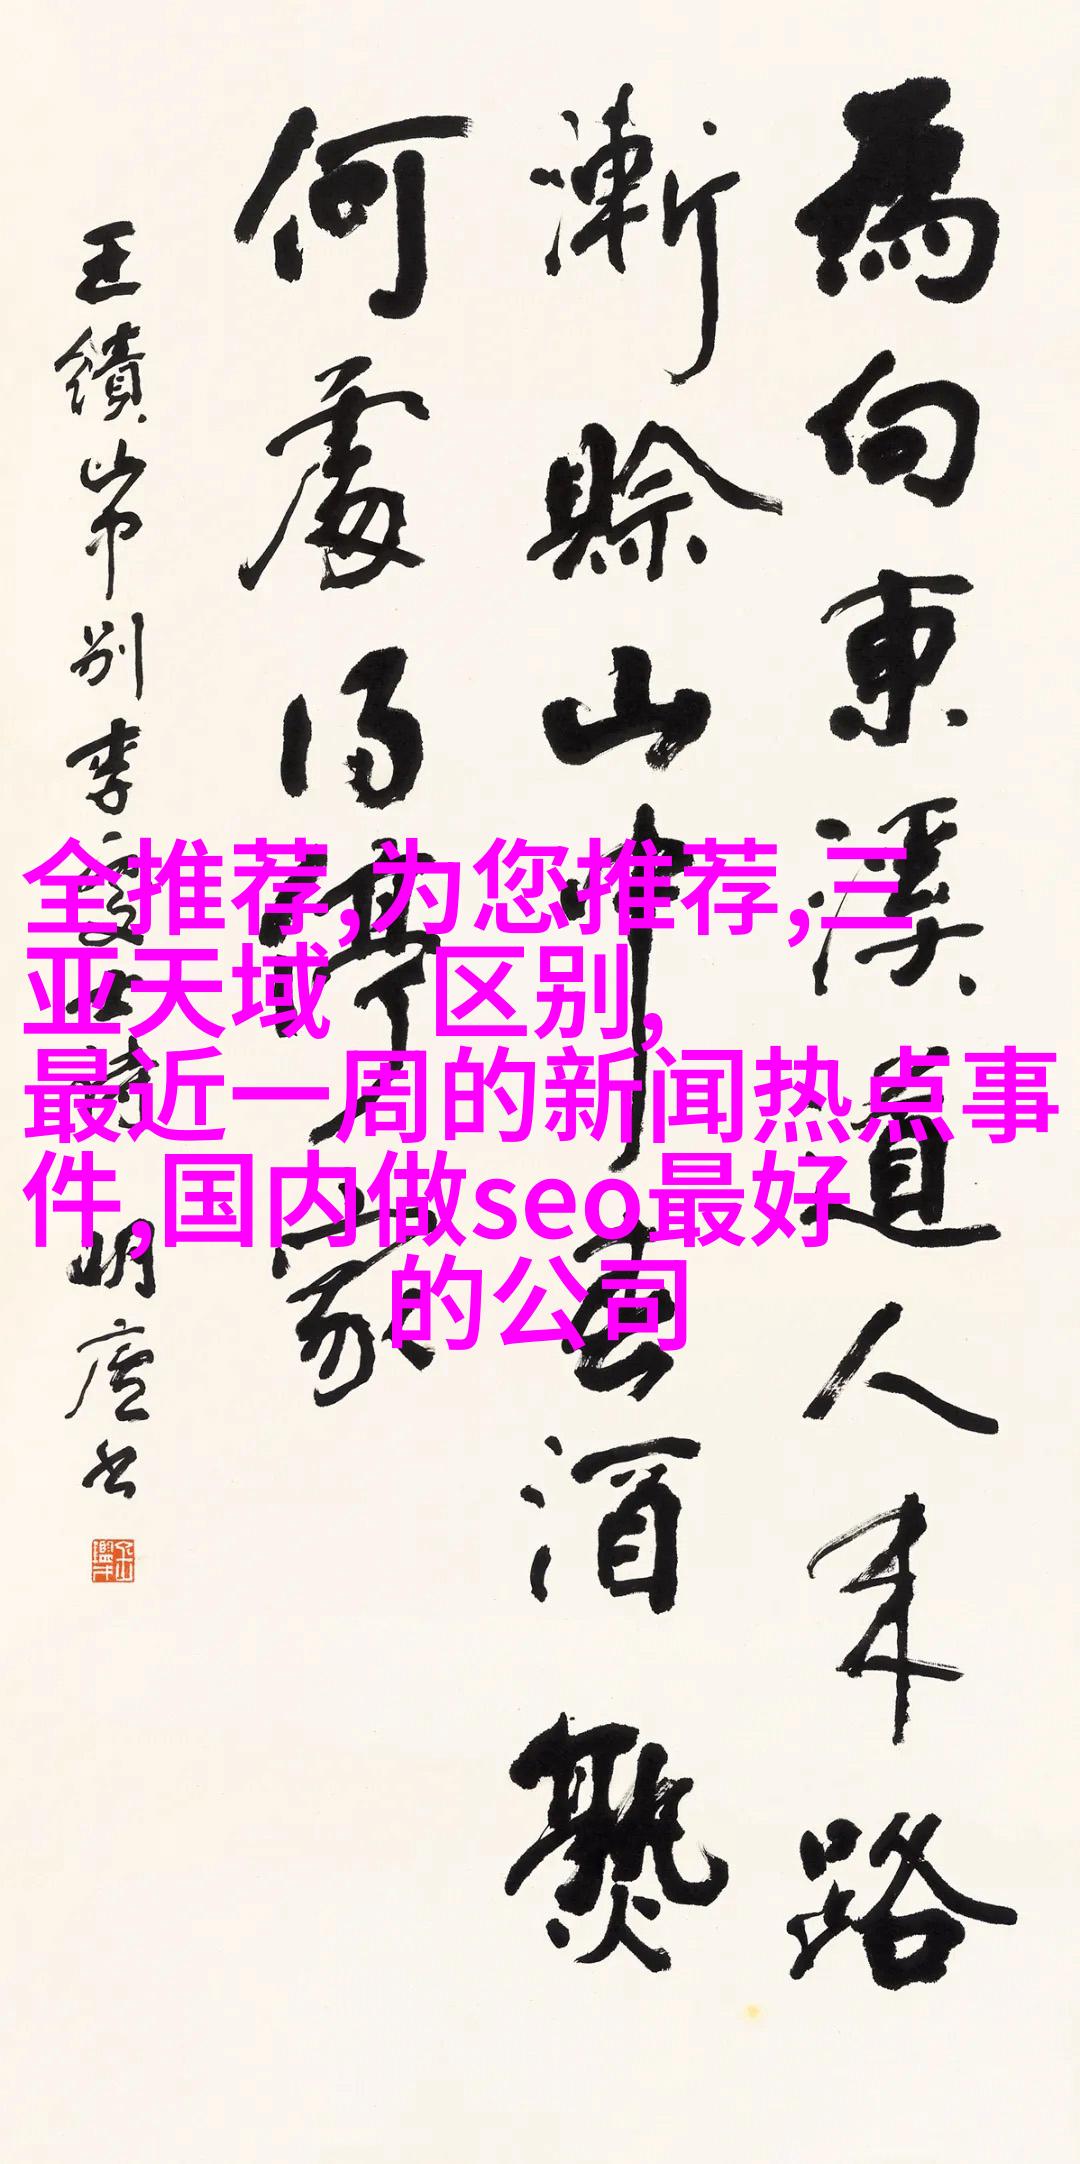 為向東溪道人来路
漸賒山中春酒熟
何處得停家
王績山中别李處士詩 明廬书
全推荐,为您推荐,三
亚天域 区别,
最近一周的新闻热点事
件,国内做seo最好
的公司